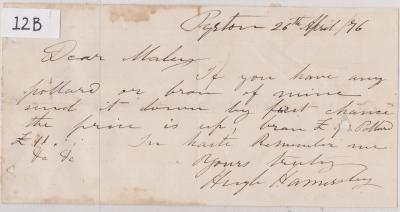 12B
Pyrton 26th April /76
Dear Maley
If you have any
pollard or bran of mine
send it down by first chance
the price is up, bran £9 Pollard
£11. In haste Remember me
&c &c
Yours truly
Hugh Hamersley